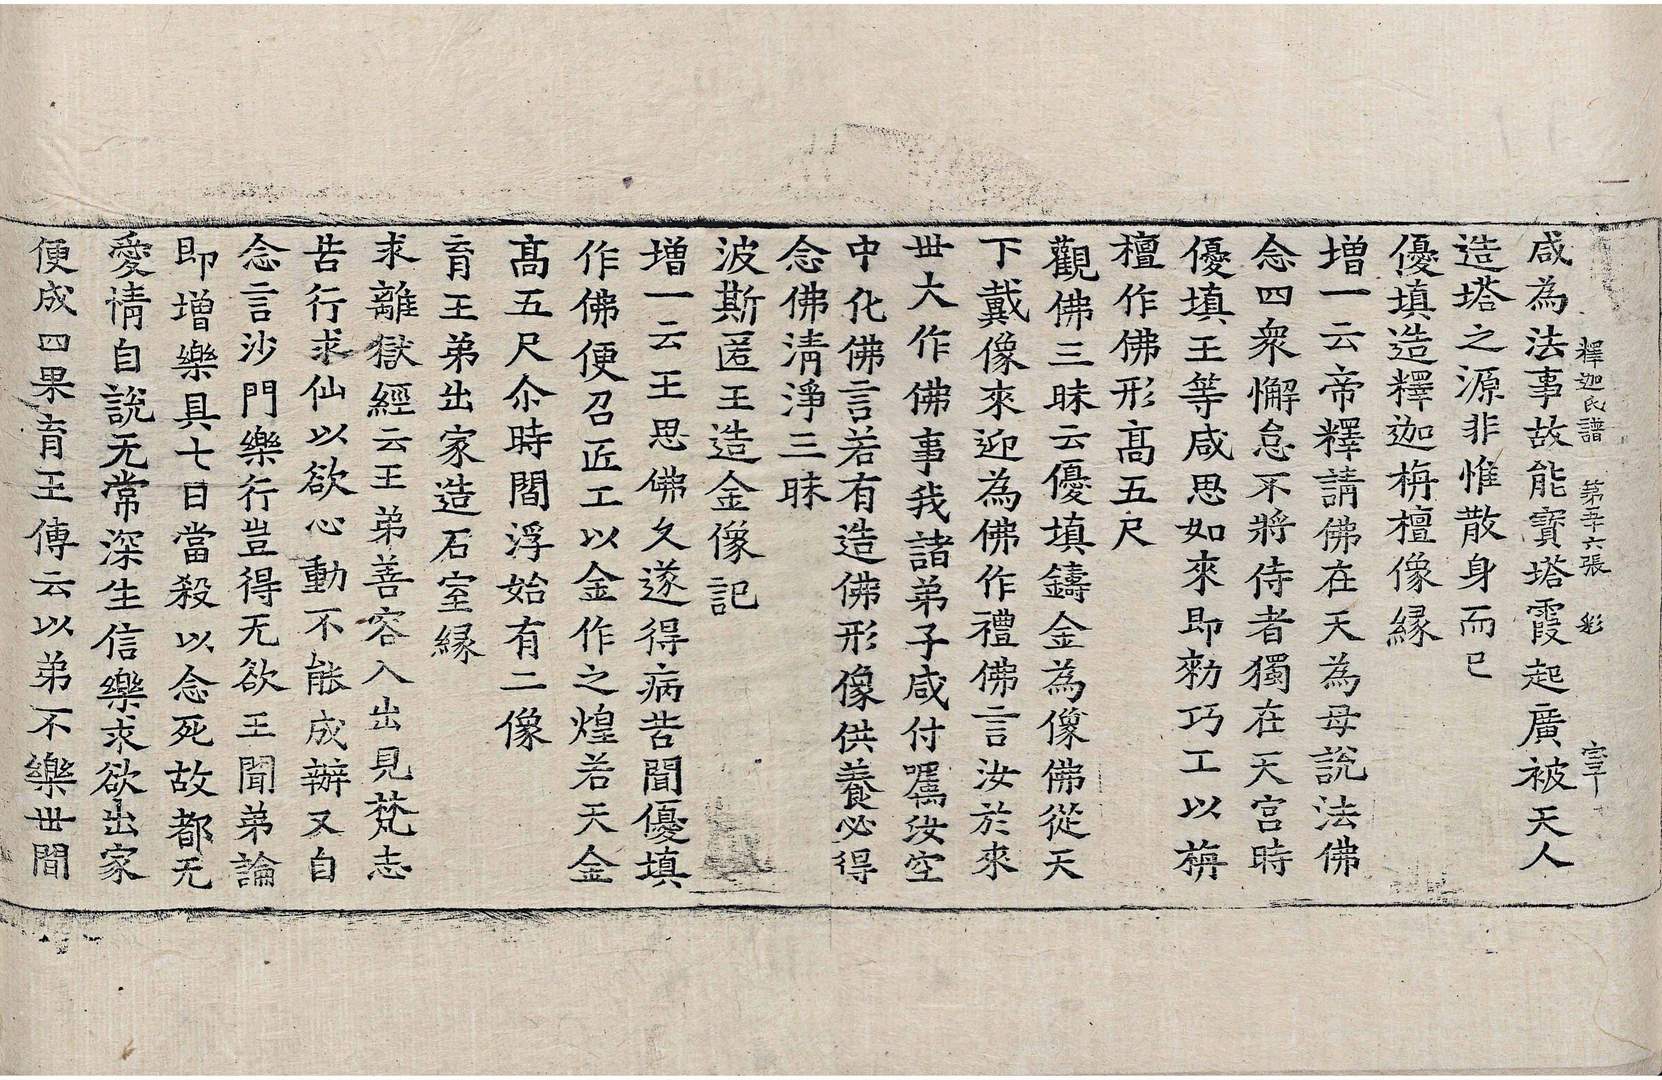 釋迦氏譜 第五十六張 彩 宰
咸為法事故能寶塔霞起廣被天人
造塔之源非惟散身而已
優填造釋迦栴檀像縁
增一云帝釋請佛在天為母說法佛
念四衆懈怠不將侍者獨在天宮時
優填王等咸思如來即勑巧工以栴
檀作佛形髙五尺
觀佛三昧云優填鑄金為像佛從天
下戴像來迎為佛作禮佛言汝於來
丗大作佛事我諸弟子咸付嘱汝空
中化佛言若有造佛形像供養必得
念佛清淨三昧
波斯匿王造金像記
增一云王思佛久遂得病苦聞優填
作佛便召匠工以金作之煌若天金
髙五尺尒時閻浮始有二像
育王弟出家造石室縁
求離獄經云王弟善容入出見梵志
苦行求仙以欲心動不能成辦又自
念言沙門樂行豈得无欲王聞弟論
即增樂具七日當殺以念死故都无
愛情自說无常深生信樂求欲出家
便成四果育王傳云以弟不樂丗間